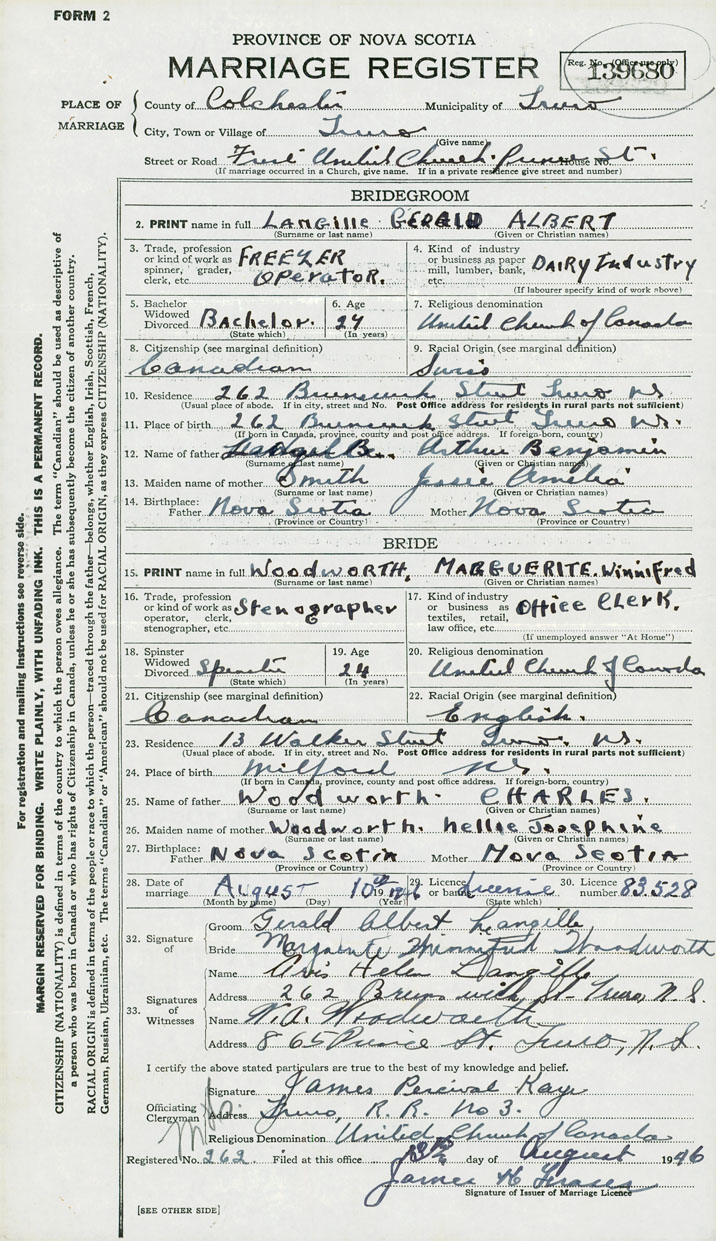 FORM 2
PROVINCE OF NOVA SCOTIA
MARRIAGE REGISTER
Reg. No. (Office use only)
139680
PLACE OF MARRIAGE
County of Colchester Municipality of Truro
City, Town or Village of Truro
(Give name)
Street or Road First United Church. Prince St. House No.
(If marriage occurred in a Church, give name. If in a private residence give street and number)
BRIDEGROOM
2. PRINT name in full Langille GERALD ALBERT
(Surname or last name) (Given or Christian names)
3. Trade, profession or kind of work as spinner, grader, clerk, etc. FREEZER OPERATOR.
4. Kind of industry or business as paper mill, lumber, bank, etc. DAIRY Industry
(If labourer specify kind of work above)
5. Bachelor Widowed Divorced Bachelor.
(State which)
6. Age 24
(In years)
7. Religious denomination
United Church of Canada
8. Citizenship (see marginal definition)
Canadian
9. Racial Origin (see marginal definition)
Swiss
10. Residence 262 Brunswick Street Truro NS
(Usual place of abode. If in city, street and No. Post Office address for residents in rural parts not sufficient)
11. Place of birth 262 Brunswick Street Truro NS.
(If born in Canada, province, county and post office address. If foreign-born, country)
12. Name of father Arthur Benjamin
(Surname or last name) (Given or Christian names)
13. Maiden name of mother Smith Jessie Amelia
(Surname or last name) (Given or Christian names)
14. Birthplace: Father Nova Scotia Mother Nova Scotia
(Province or Country) (Province or Country)
BRIDE
15. PRINT name in full Woodworth, MARGUERITE. Winnifred
(Surname or last name) (Given or Christian names)
16. Trade, profession or kind of work as operator, clerk, stenographer, etc. Stenographer
17. Kind of industry or business as textiles, retail, law office, etc. Office Clerk.
(If unemployed answer "At Home")
18. Spinster Widowed Divorced Spinster
(State which)
19. Age 24
(In years)
20. Religious denomination
United Church of Canada
21. Citizenship (see marginal definition)
Canadian
22. Racial Origin (see marginal definition)
English.
23. Residence 13 Walker Street Truro. NS.
(Usual place of abode. If in city, street and No. Post Office address for residents in rural parts not sufficient)
24. Place of birth Milford NS.
(If born in Canada, province, county and post office address. If foreign-born, country)
25. Name of father Woodworth. CHARLES.
(Surname or last name) (Given or Christian names)
26. Maiden name of mother Woodworth. Nellie Josephine
(Surname or last name) (Given or Christian names)
27. Birthplace: Father Nova Scotia Mother Nova Scotia
(Province or Country) (Province or Country)
28. Date of marriage August 10th 1946
(Month by name) (Day) (Year)
29. Licence or banns License
(State which)
30. Licence number 83,528
32. Signature of
Groom Gerald Albert Langille
Bride Marguerite Winnifred Woodworth
33. Signatures of Witnesses
Name Avis Helen Langille
Address 262 Brunswick St. Truro, N.S.
Name W.A. Woodworth
Address 865 Prince St. Truro, N.S.
I certify the above stated particulars are true to the best of my knowledge and belief.
Officiating Clergyman
Signature James Percival Kaye
Address Truro, R.R. No 3.
Religious Denomination United Church of Canada
Registered No. 262. Filed at this office 13th day of August 1946
James H Fraser
Signature of Issuer of Marriage Licence
[SEE OTHER SIDE]
For registration and mailing instructions see reverse side.
MARGIN RESERVED FOR BINDING. WRITE PLAINLY, WITH UNFADING INK. THIS IS A PERMANENT RECORD.
CITIZENSHIP (NATIONALITY) is defined in terms of the country to which the person owes allegiance. The term "Canadian" should be used as descriptive of
a person who was born in Canada or who has rights of Citizenship in Canada, unless he or she has subsequently become the citizen of another country.
RACIAL ORIGIN is defined in terms of the people or race to which the person—traced through the father—belongs, whether English, Irish, Scottish, French,
German, Russian, Ukrainian, etc. The terms "Canadian" or "American" should not be used for RACIAL ORIGIN, as they express CITIZENSHIP (NATIONALITY).